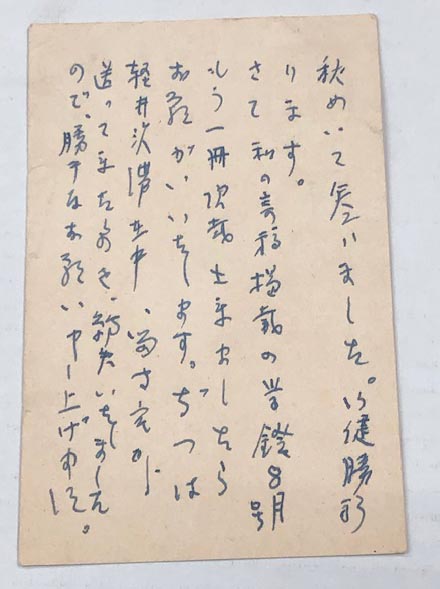 秋めいて参りました。御健勝祈
ります。
さて私の寄稿掲載の学鐙8月号
もう一冊頂戴出来ましたら
お願がいいたします。じつは
軽井沢滞在中、留守宅から
送って来たのを、紛失いたしました
ので、勝手なお願い申し上げます。